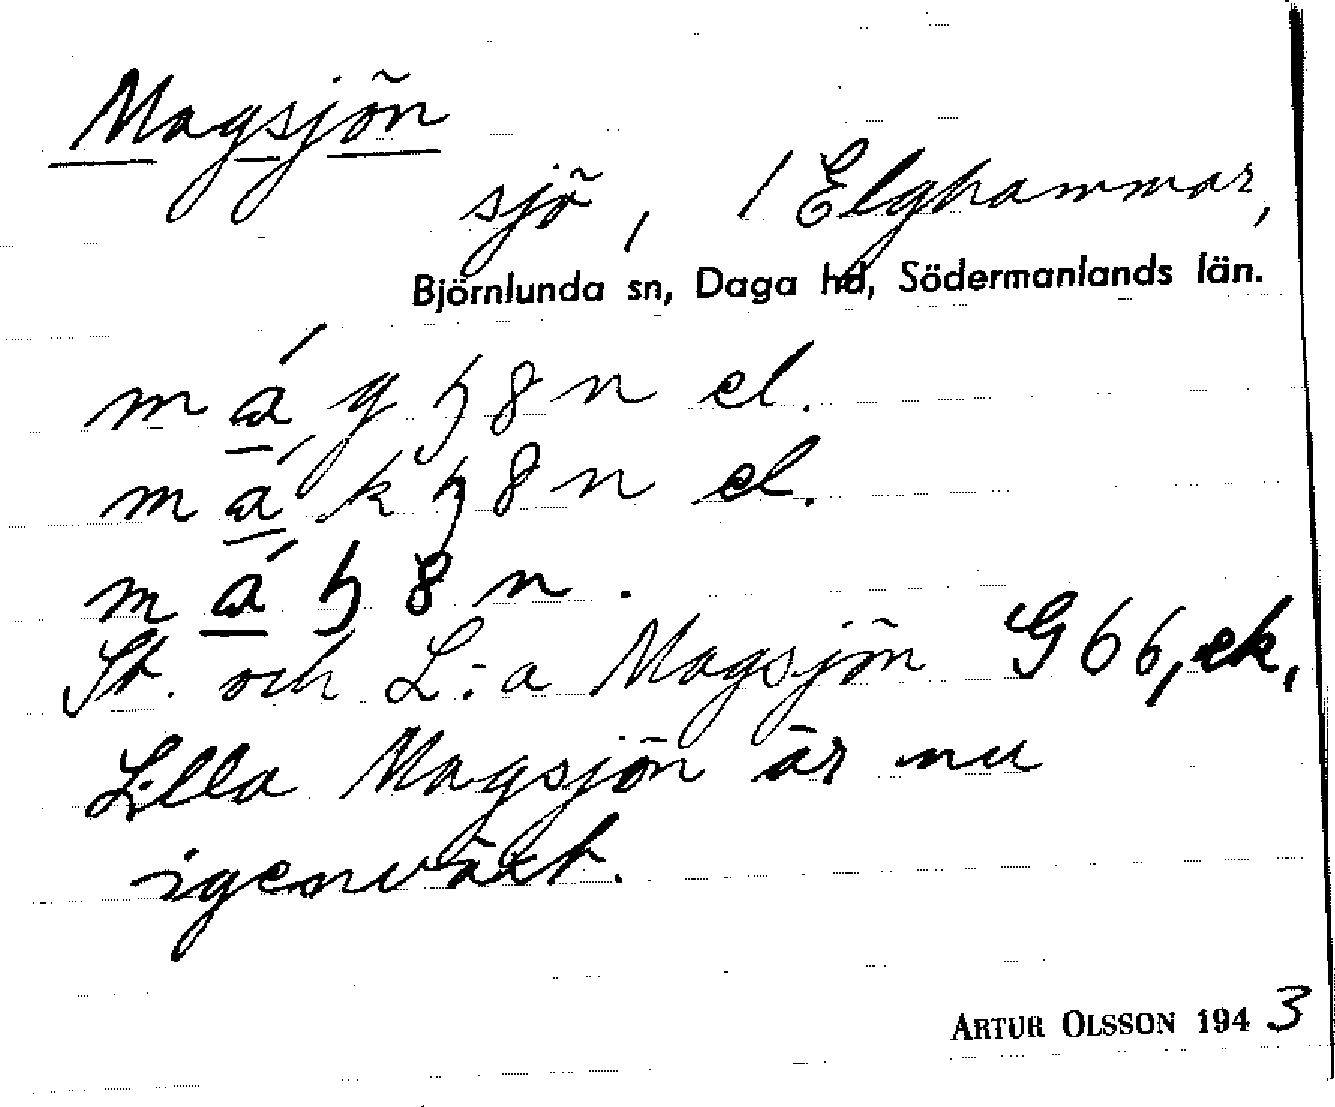 Magsjön
sjö, / Elghammar,
Björnlunda sn, Daga hd, Södermanlands län.
el.
el.
St. och L:a Magsjön G 66, ek,
Lilla Magsjön är nu
igenväxt.
ARTUR OLSSON 1943